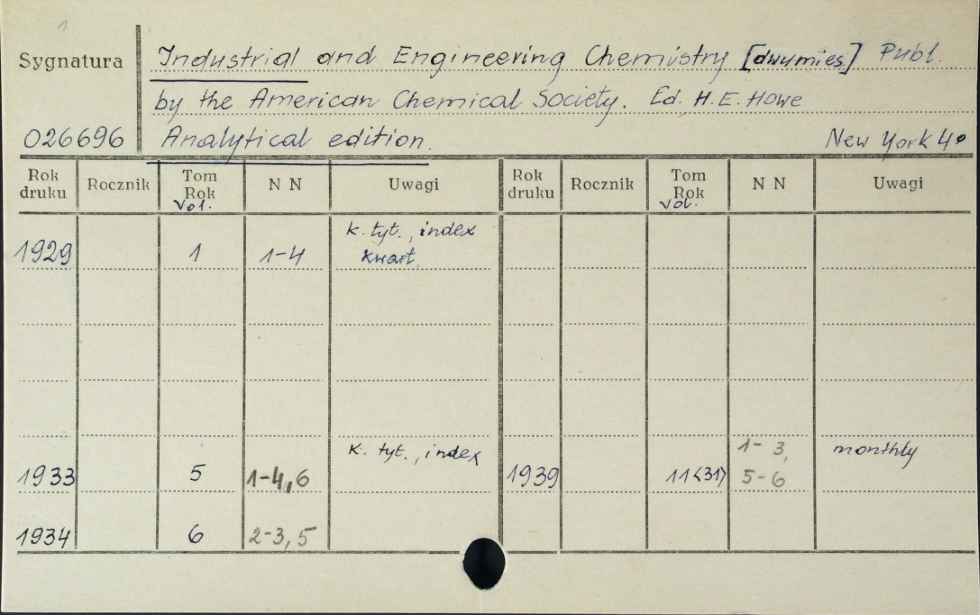 1
Sygnatura Industrial and Engineering Chemistry [dwumies.] Publ.
by the American Chemical Society. Ed. H.E. Howe
026696 Analytical edition. New York 4°
Rok druku Rocznik Tom Rok vol. N N Uwagi Rok druku Rocznik Tom Rok vol. N N Uwagi
1929 1 1-4 k. tyt., index kwart.
1933 5 1-4,6 k. tyt., index 1939 11<31> 1-3, 5-6 monthly
1934 6 2-3,5